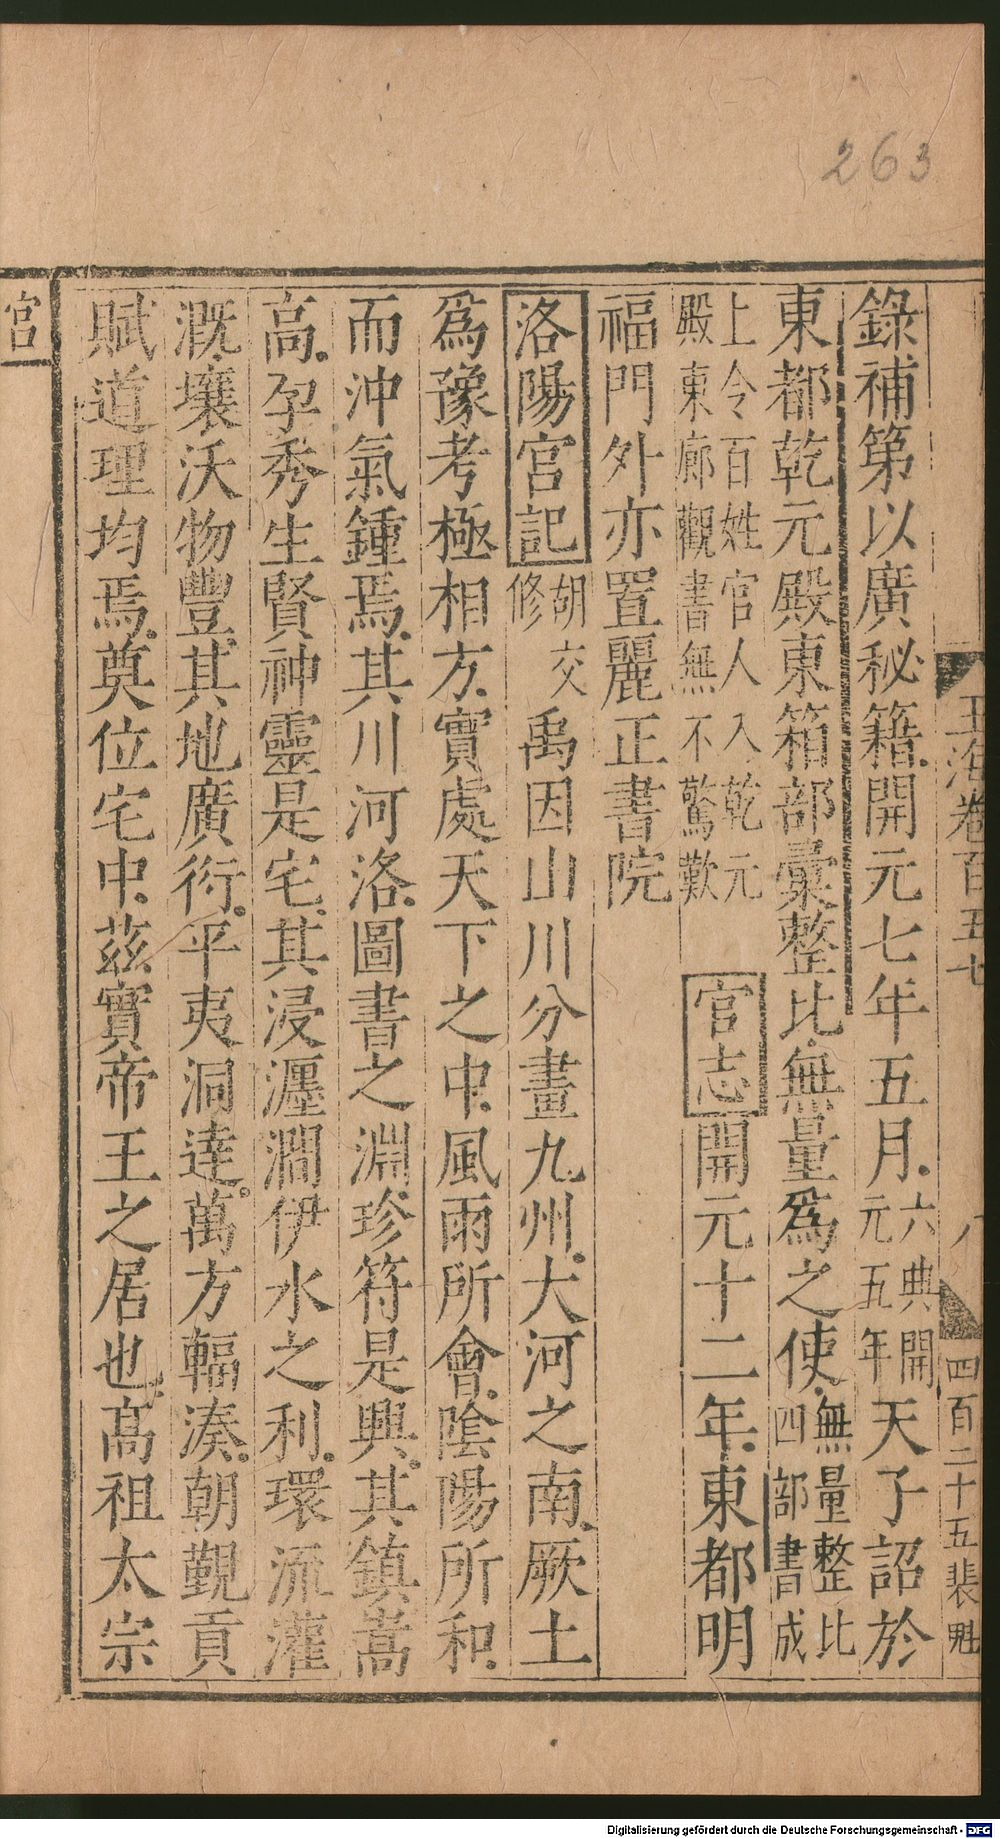 263
玉海卷百五七
八
四百二十五裴魁
錄補第以廣秘籍開元七年五月六典開元五年天子詔於
東都乾元殿東箱部彙整比無量爲之使無量整比四部書成
上令百姓官人入乾元殿東廊觀書無不驚歎官志開元十二年東都明
福門外亦置麗正書院
洛陽宮記胡交修禹因山川分畫九州大河之南厥土
爲豫考極相方實處天下之中風雨所會陰陽所和
而沖氣鍾焉其川河洛圖書之淵珍符是興其鎮嵩
高孕秀生賢神靈是宅其浸瀍澗伊水之利環流灌
溉壤沃物豐其地廣衍平夷洞達萬方輻湊朝覲貢
賦道理均焉奠位宅中茲實帝王之居也高祖太宗
宮
Digitalisierung gefördert durch die Deutsche Forschungsgemeinschaft - DFG